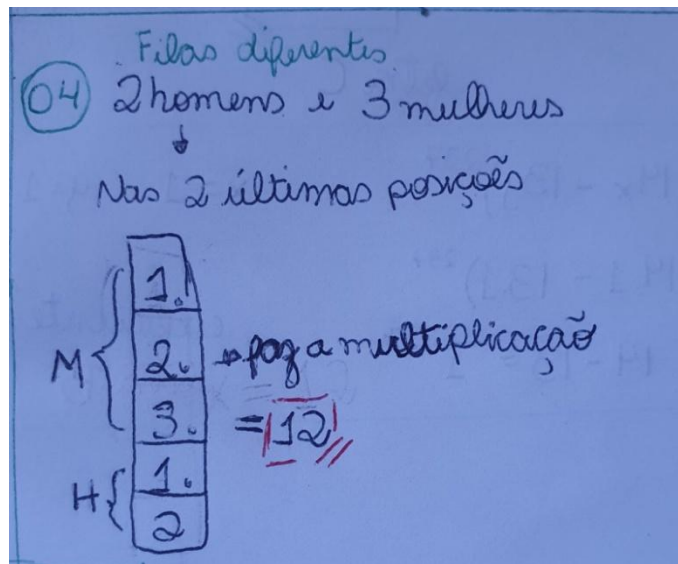 Filas diferentes
04 2 homens e 3 mulheres
↓
Nas 2 últimas posições
1.
M { 2. → faz a multiplicação
3. = 12 //
H { 1.
2